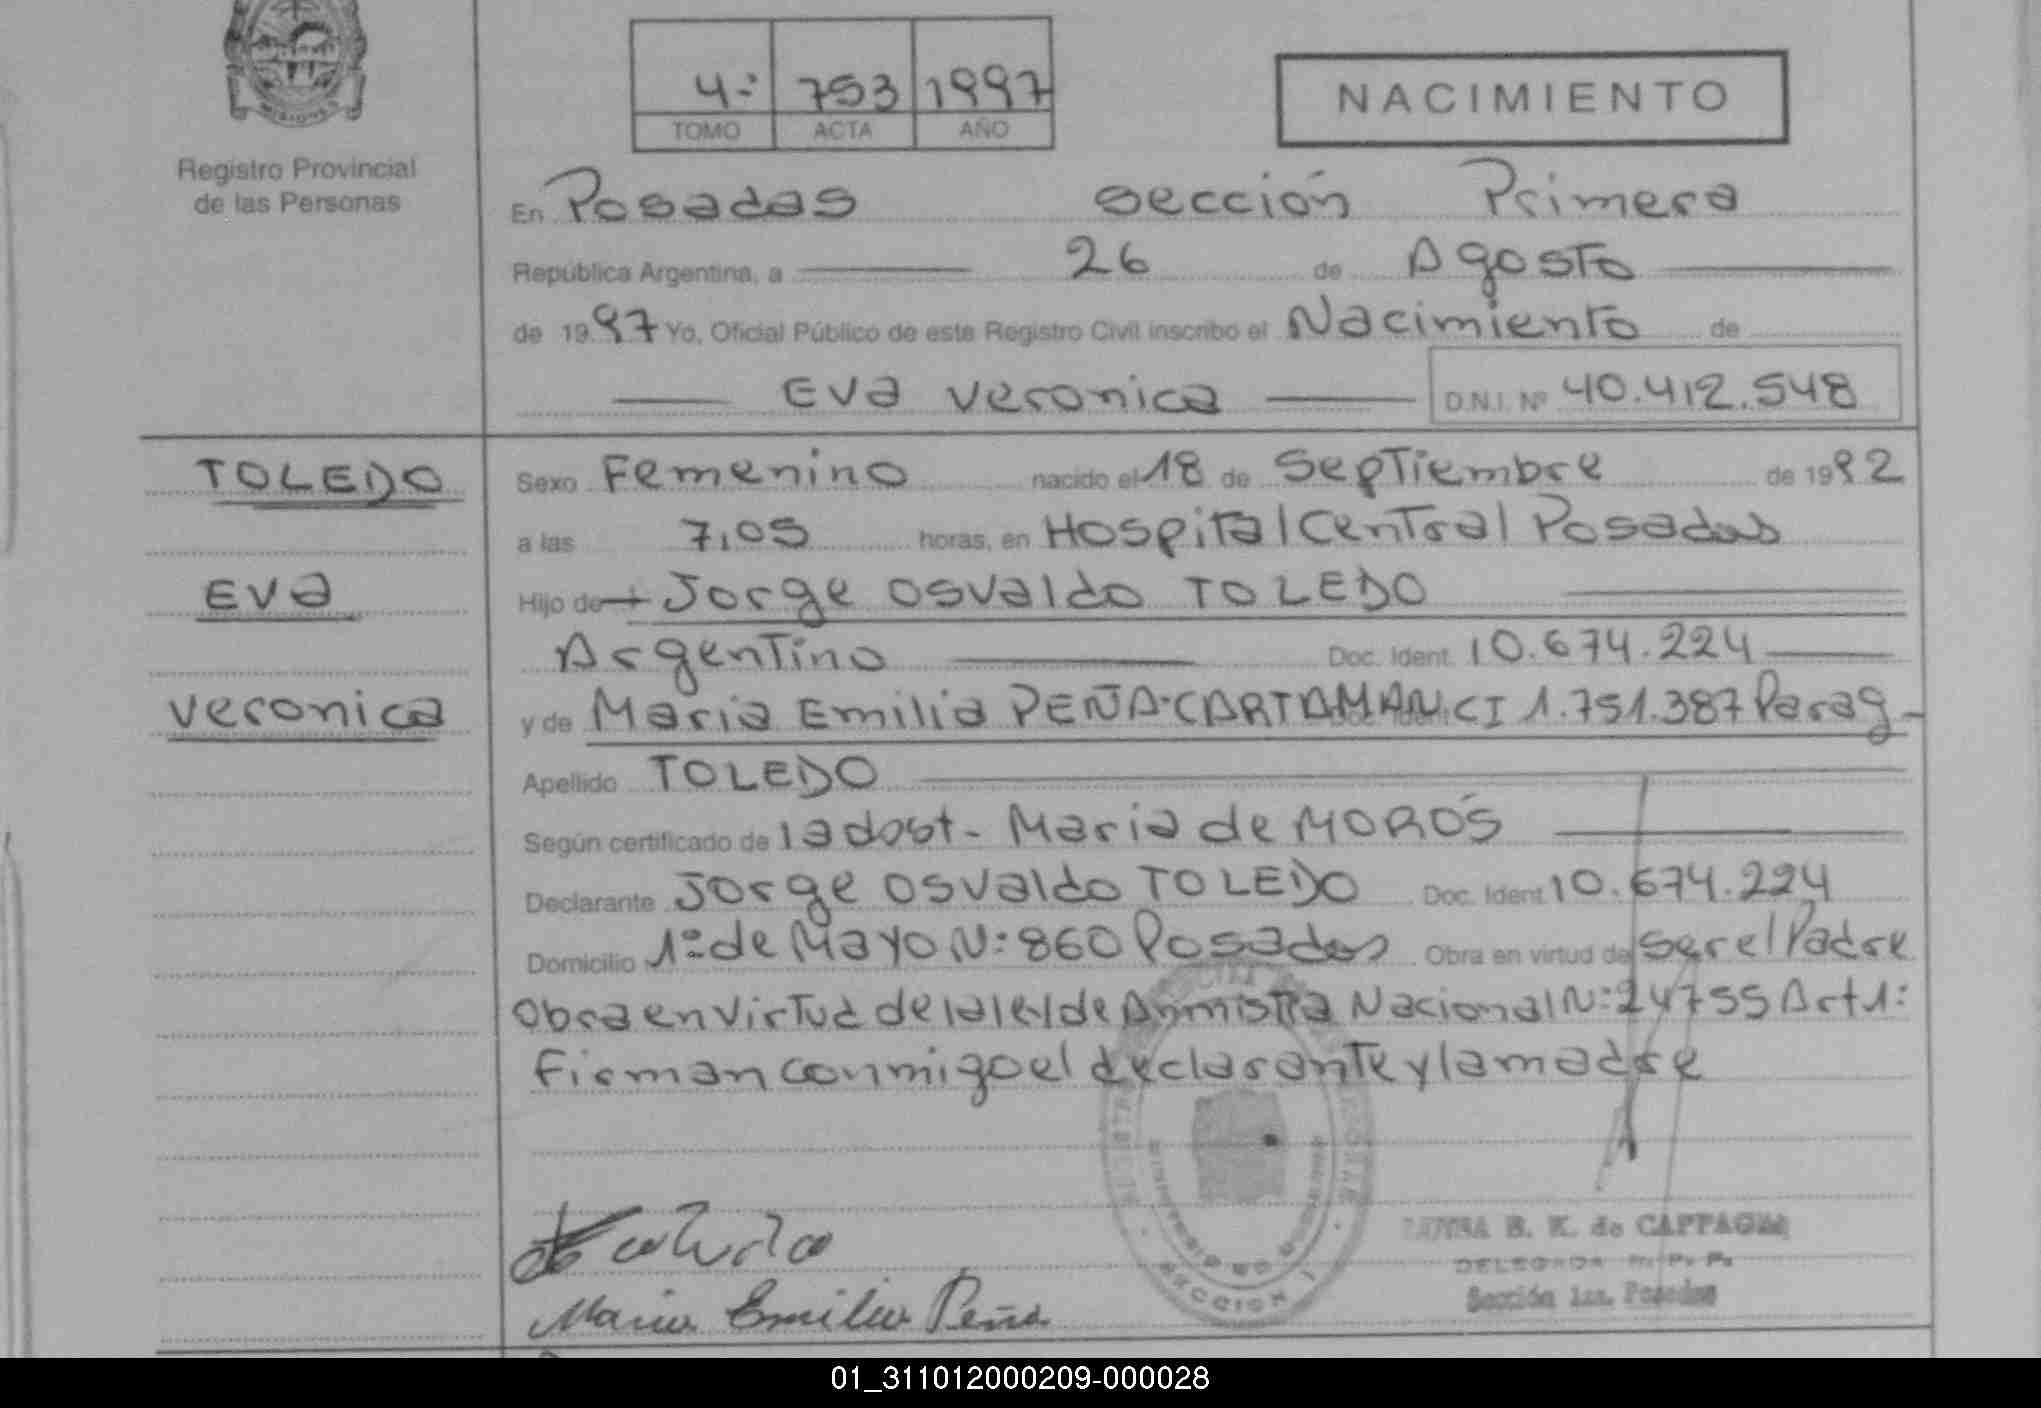 MISIONES
4º 753 1997
TOMO ACTA AÑO
NACIMIENTO
Registro Provincial
de las Personas
En Posadas sección Primera
República Argentina, a 26 de Agosto
de 1997 Yo, Oficial Público de este Registro Civil inscribo el Nacimiento de
Eva Veronica D.N.I. Nº 40.412.548
TOLEDO
Eva
Veronica
Sexo Femenino nacido el 18 de Septiembre de 1992
a las 7,05 horas, en Hospital Central Posadas
Hijo de Jorge Osvaldo TOLEDO
Argentino Doc. Ident. 10.674.224
y de Maria Emilia PEÑA-CARTAMAN CI 1.751.387 Parag-
Apellido TOLEDO
Según certificado de la dobt- Maria de MORÓS
Declarante Jorge Osvaldo TOLEDO Doc. Ident. 10.674.224
Domicilio 1º de Mayo Nº 860 Posadas Obra en virtud de ser el Padre
Obra en virtud de la ley de Anmistia Nacional Nº 24755 Art 1º
Firman conmigo el declarante y la madre
Maria Emilia Peña
B. K. de CAPPAGLI
DELEGADA R. P. P.
Sección 1ra. Posadas
SECCION 1
01_311012000209-000028